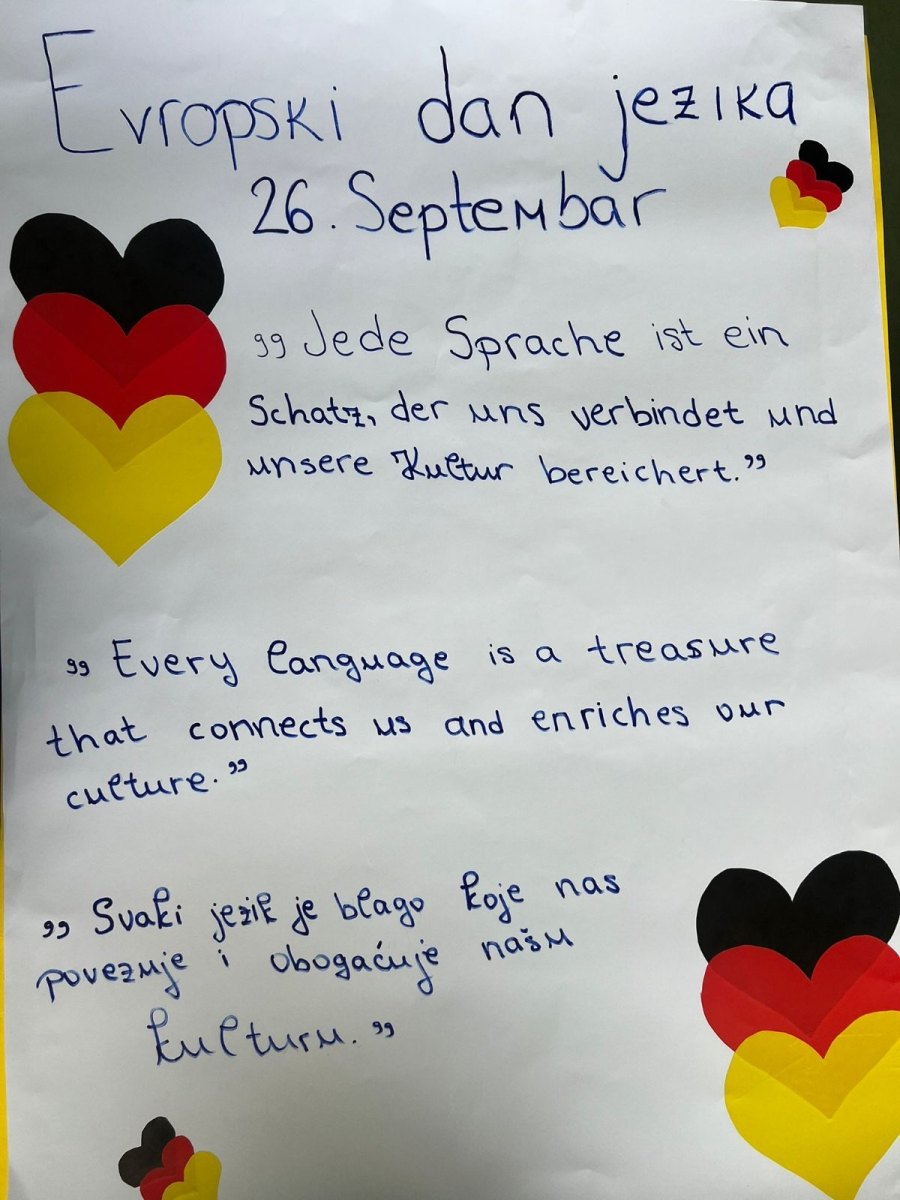 Evropski dan jezika
26. Septembar
,,Jede Sprache ist ein
Schatz, der uns verbindet und
unsere Kultur bereichert.”
,,Every language is a treasure
that connects us and enriches our
culture.”
,,Svaki jezik je blago koje nas
povezuje i obogaćuje našu
kulturu.”